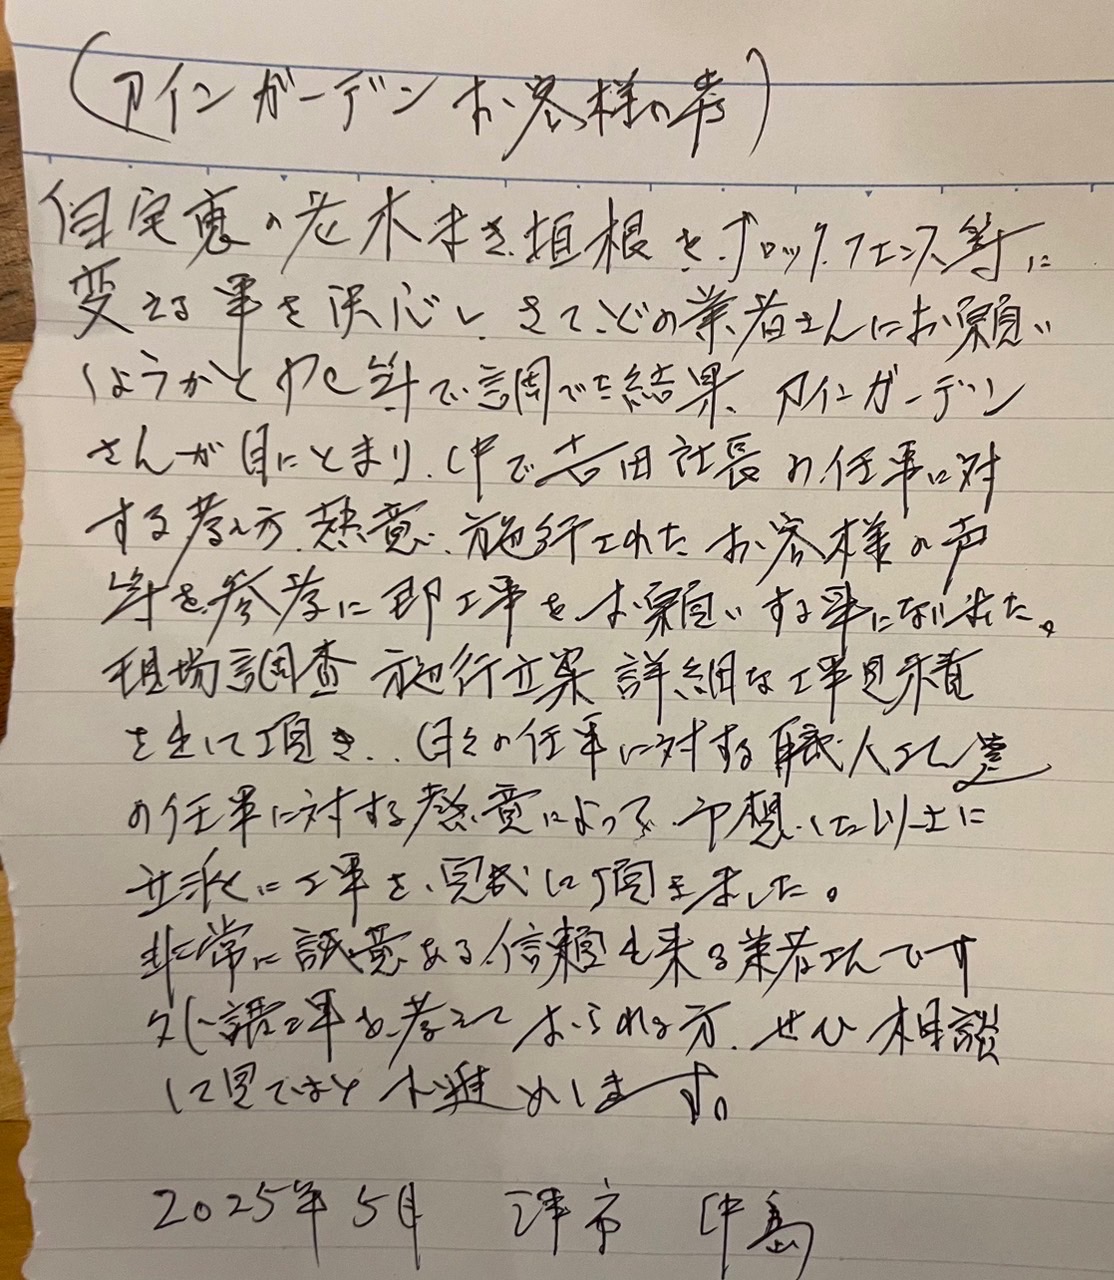 (アインガーデンお客様の声)
自宅裏の老木生き垣根をブロック、フェンス等に
変える事を決心し、さて、どの業者さんにお願い
しようかとネット等で調べた結果、アインガーデン
さんが目にとまり、中で吉田社長の仕事に対
する考え方、熱意、施行されたお客様の声
等を参考に即工事をお願いする事になりました。
現場調査 施行立案 詳細な工事見積
を出して頂き、日々の仕事に対する職人さん達
の仕事に対する熱意によって、予想した以上に
立派に工事を、完成して頂きました。
非常に誠意ある、信頼出来る業者さんです
外構工事を考えておられる方、ぜひ 相談
して見てはと お進めします。
2025年5月 津市 中島